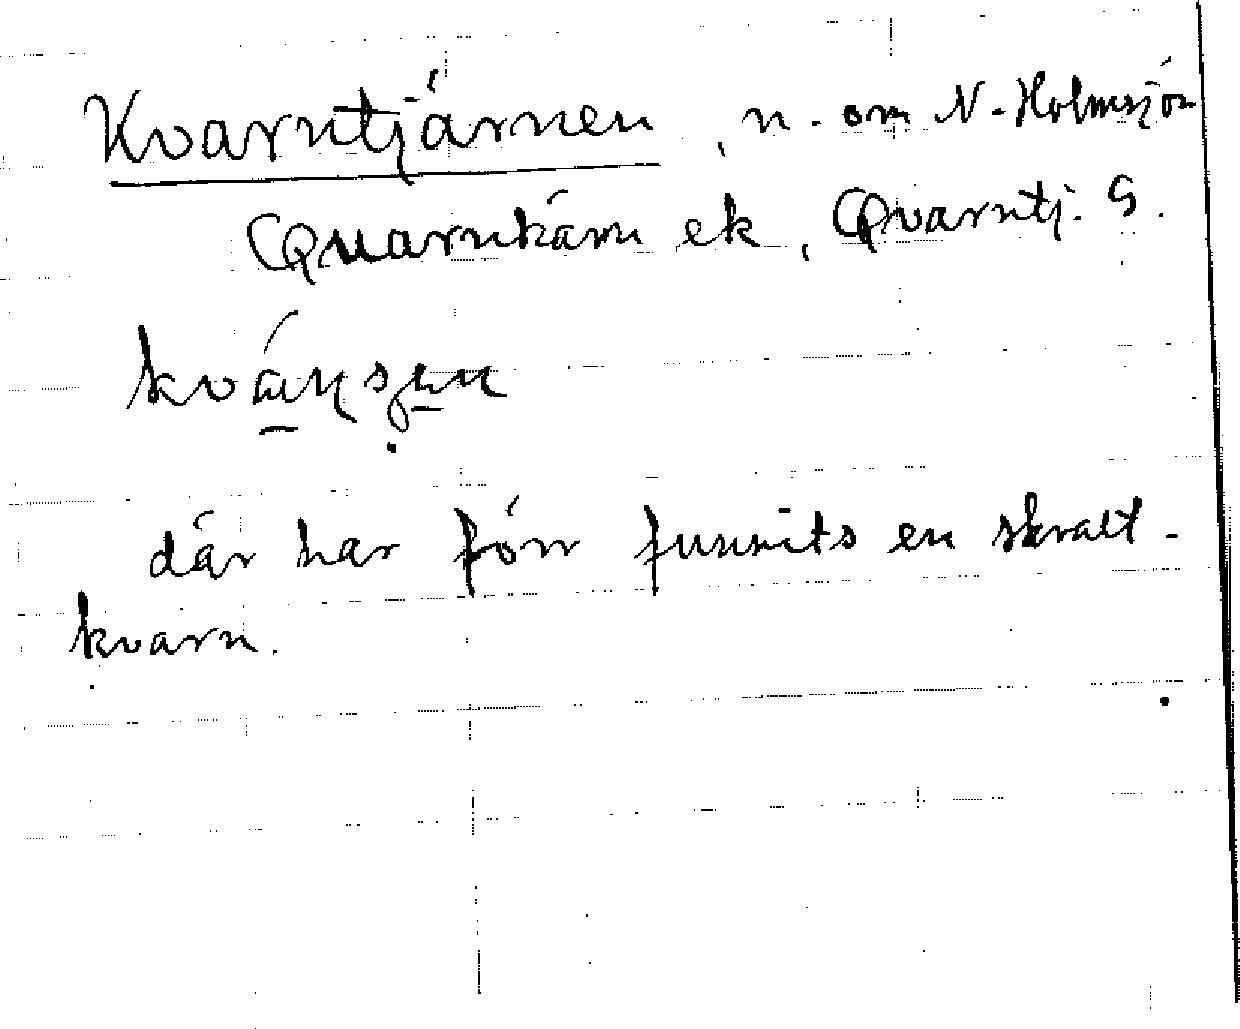 Kvarntjärnen, n. om N. Holmsjön
Quarnkärn ek, Qvarntj. G.
där har förr funnits en skvalt-
kvarn.